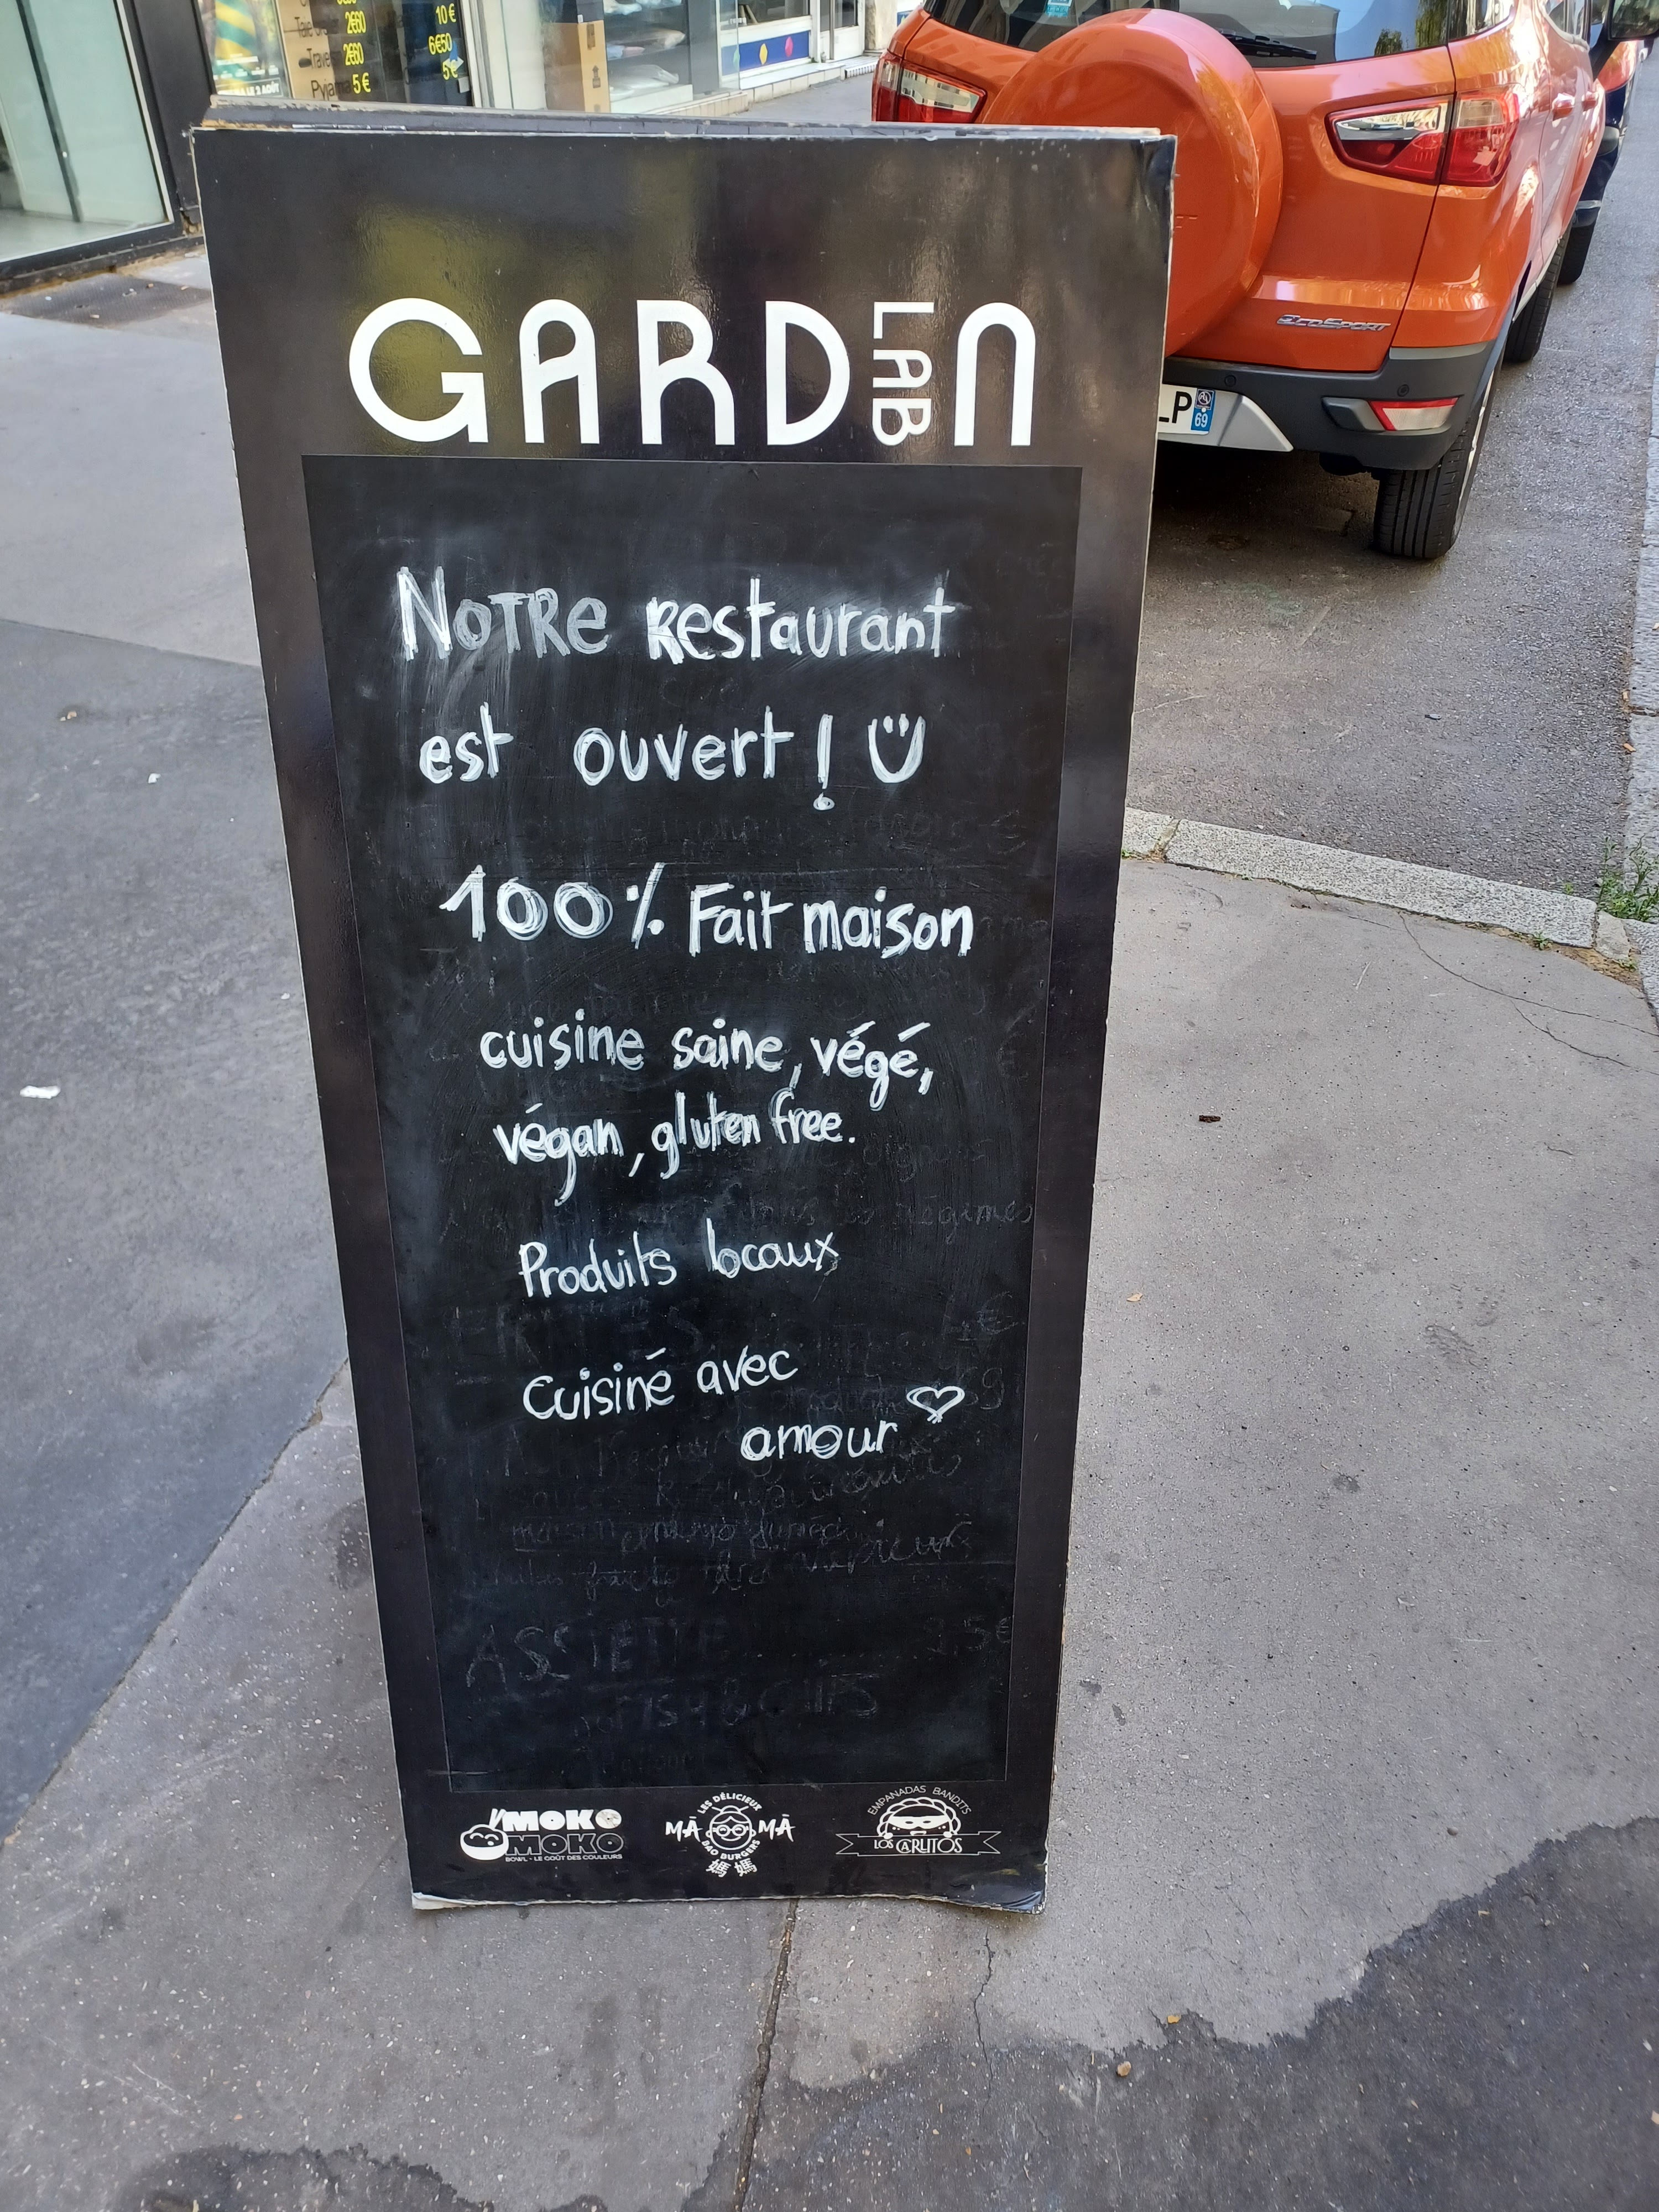 10€
Taie 2€60
Traver 2€60
6€50
Pyja 5€
5€
GARD LAB N
NOTRE Restaurant
est ouvert !
100% Fait maison
cuisine saine, végé,
végan, gluten free.
Produits locaux
Cuisiné avec
amour
ASSIETTE
MOKO
MOKO
BOWL - LE GOÛT DES COULEURS
LES DÉLICIEUX
MÀ MÀ
BAO BURGERS
媽媽
EMPANADAS BANDITS
LOS CARLITOS
ECOSPORT
LP
69